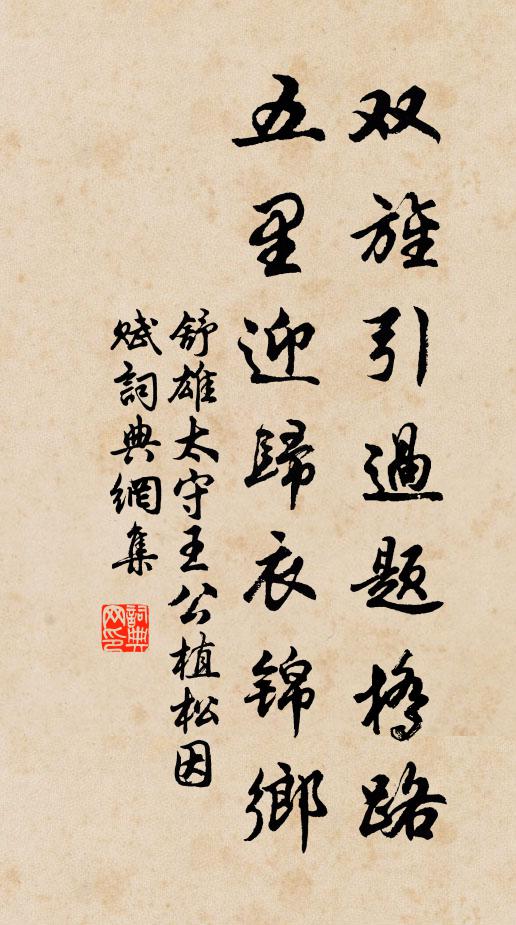 双旌引過题橋路
五里迎歸衣錦鄉
舒雄太守王公植松因
赋詞典網集
詞典网印